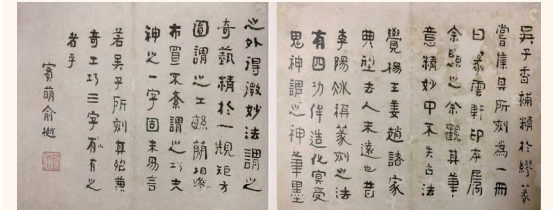 吳子香補精於繆篆
嘗集其所刻為一冊
曰雲軒印存屬
余題之余觀其筆
意精妙中不失古法
覺楊王姜趙諸家
典型去人未遠也昔
李陽冰得篆刻之法
有四功侔造化冥受
鬼神謂之神筆墨
之外得微妙法謂之
奇藝精於一規矩方
圓謂之工繁簡相參
布置不紊謂之巧夫
神之一字固未易言
若吳子所刻其殆兼
奇工巧三字而有之
者乎
賓萌俞樾